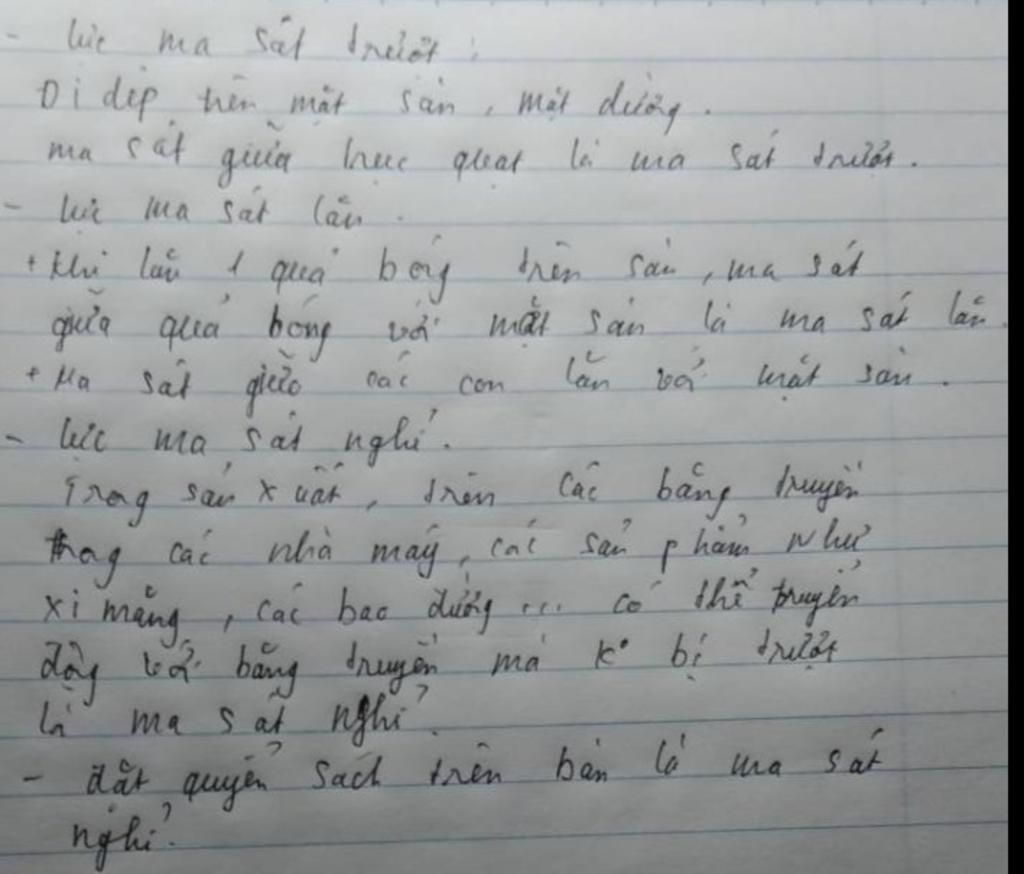 - lực ma sát trượt :
Đi dép trên mặt sàn, mặt đường.
ma sát giữa trục quạt là ma sát trượt.
- lực ma sát lăn.
+ Khi lăn 1 quả bóng trên sàn, ma sát
giữa quả bóng với mặt sàn là ma sát lăn
+ Ma sát giữa các con lăn với mặt sàn.
- lực ma sát nghỉ.
Trong sản xuất, trên các băng truyền
trong các nhà máy, các sản phẩm như
xi măng, các bao đường ... có thể truyển
động với băng truyền mà k° bị trượt
là ma sát nghỉ.
- đặt quyển sách trên bàn là ma sát
nghỉ.